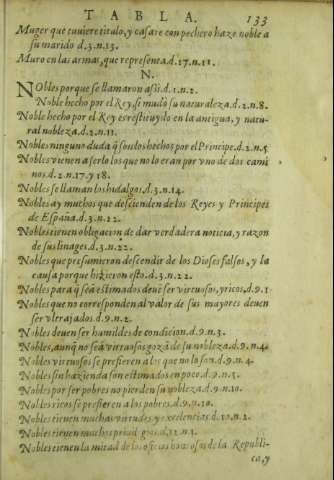 TABLA. 133
Muger que tuviere titulo, y casare con pechero haze noble a
su marido d.3.n.13.
Muro en las armas, que representa.d.27.n.11.
N.
NObles porque se llamaron assi.d.1.n.2.
Noble hecho por el Rey, si mudo su naturaleza.d.2.n.8.
Noble hecho por el Rey es restituydo en la antigua, y natu-
ral nobleza.d.2.n.11.
Nobles ninguno duda q̃ son los hechos por el Principe.d.2.n.5
Nobles vienen a serlo los que no lo eran por vno de dos cami
nos.d.2.n.17.y 18.
Nobles se llaman los hidalgos.d.3.n.14.
Nobles ay muchos que descienden de los Reyes y Principes
de España.d.3.n.22.
Nobles tienen obligacion de dar verdadera noticia, y razon
de sus linages.d.3.n.22.
Nobles que presumieron descendir de los Dioses falsos, y la
causa porque hizieron esto.d.3.n.22.
Nobles para q̃ seã estimados deuẽ ser virtuosos, y ricos.d.9.n.1
Nobles que no corresponden al valor de sus mayores deuen
ser vltrajados.d.9.n.2.
Nobles deuen ser humildes de condicion.d.9.n.3.
Nobles, aunq̃ no seã virtuosos gozã de su nobleza.d.9.n.4.
Nobles virtuosos se prefieren a los que no lo son.d.9.n.4.
Nobles sin hazienda son estimados en poco.d.9.n.5.
Nobles por ser pobres no pierden su nobleza.d.9.n.10.
Nobles ricos se prefieren a los pobres.d.9.n.10.
Nobles tienen muchas virtudes y excelencias.d.10.n.2.
Nobles tienen muchos priuilegios.d.12.n.1.
Nobles tienen la mitad de los oficios honrosos de la Republi-
ca,y